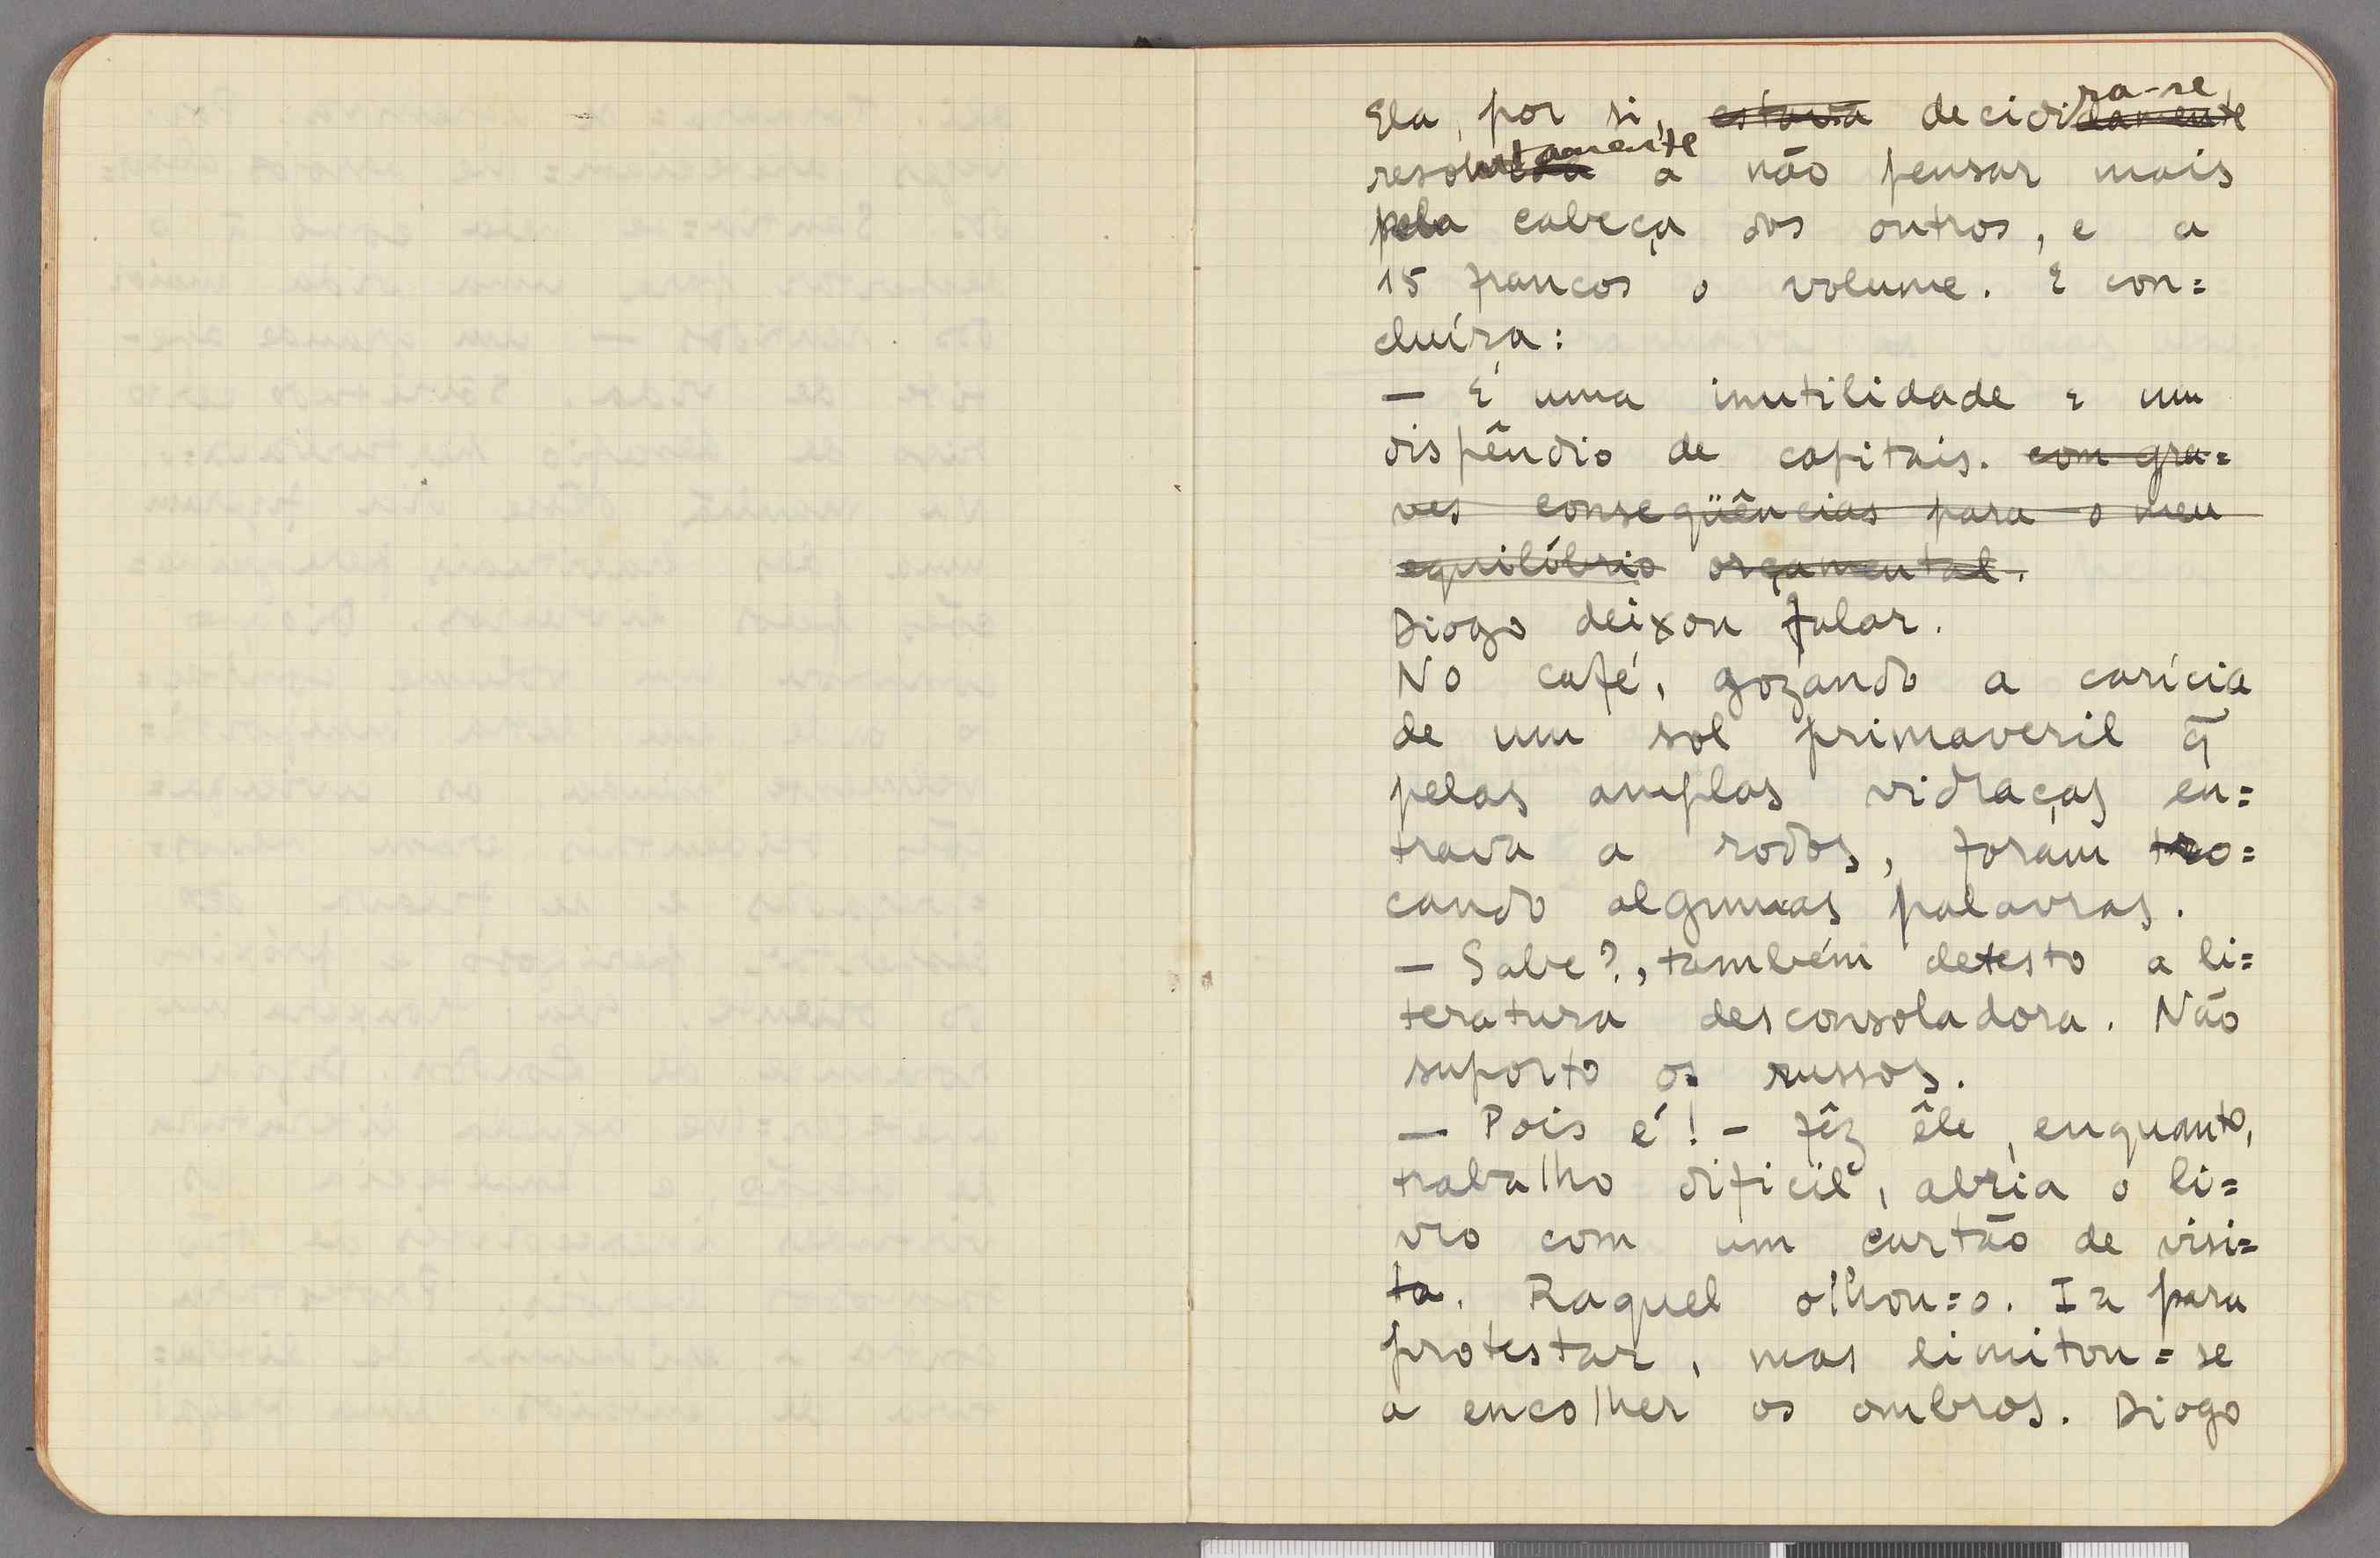 Ela, por si, estava decidira-se damente
resolutamente a não pensar mais
pela cabeça dos outros, e a
15 francos o volume. E con=
cluíra:
— É uma inutilidade e um
dispêndio de capitais. com gra=
ves conseqüências para o meu
equilíbrio orçamental.
Diogo deixou falar.
No café, gozando a carícia
de um sol primaveril q̃
pelas amplas vidraças en=
trava a rodos, foram tro=
cando algumas palavras.
— Sabe?, também detesto a li=
teratura desconsoladora. Não
suporto os russos.
— Pois é! — fêz êle, enquanto,
trabalho difícil, abria o li=
vro com um cartão de visi=
ta. Raquel olhou=o. Ia para
protestar, mas limitou=se
a encolher os ombros. Diogo